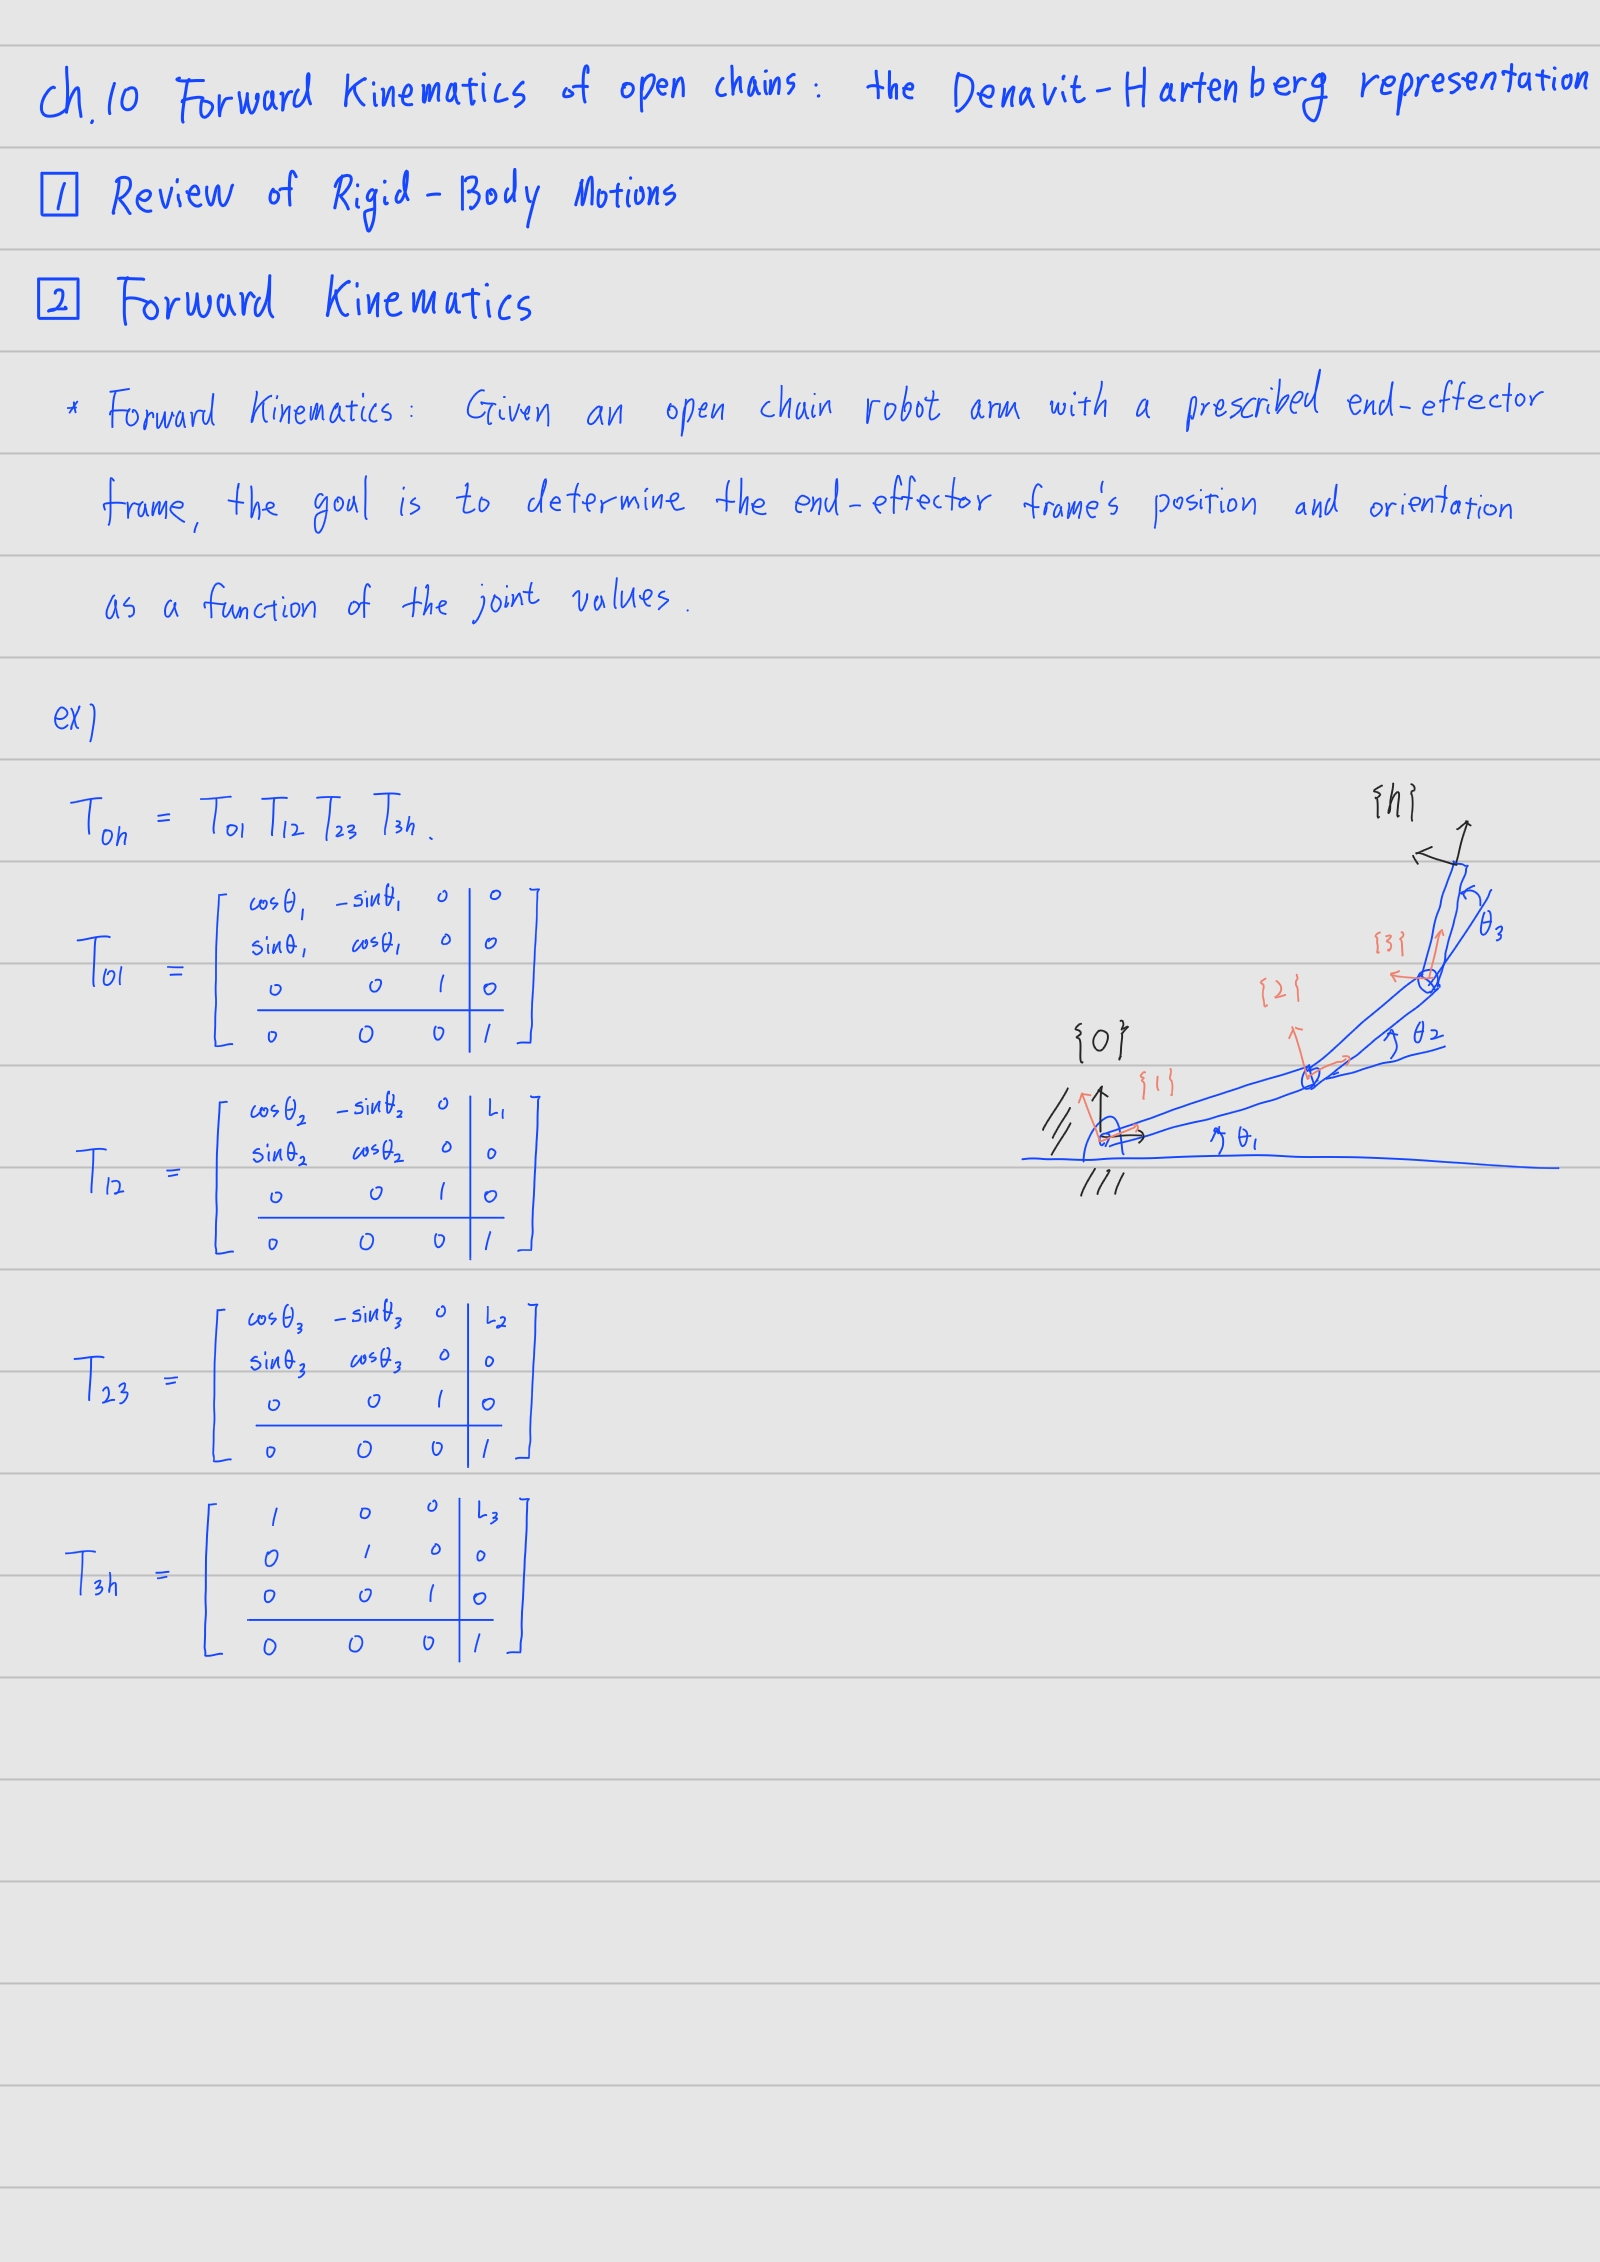 ch.10 Forward Kinematics of open chains: the Denavit-Hartenberg representation
1 Review of Rigid-Body Motions
2 Forward Kinematics
* Forward Kinematics: Given an open chain robot arm with a prescribed end-effector
frame, the goal is to determine the end-effector frame's position and orientation
as a function of the joint values.
ex)
T0h = T01 T12 T23 T3h.
T01 =
cosθ1 -sinθ1 0 0
sinθ1 cosθ1 0 0
0 0 1 0
0 0 0 1
T12 =
cosθ2 -sinθ2 0 L1
sinθ2 cosθ2 0 0
0 0 1 0
0 0 0 1
T23 =
cosθ3 -sinθ3 0 L2
sinθ3 cosθ3 0 0
0 0 1 0
0 0 0 1
T3h =
1 0 0 L3
0 1 0 0
0 0 1 0
0 0 0 1
{h}
θ3
{3}
{2}
θ2
{0}
{1}
θ1